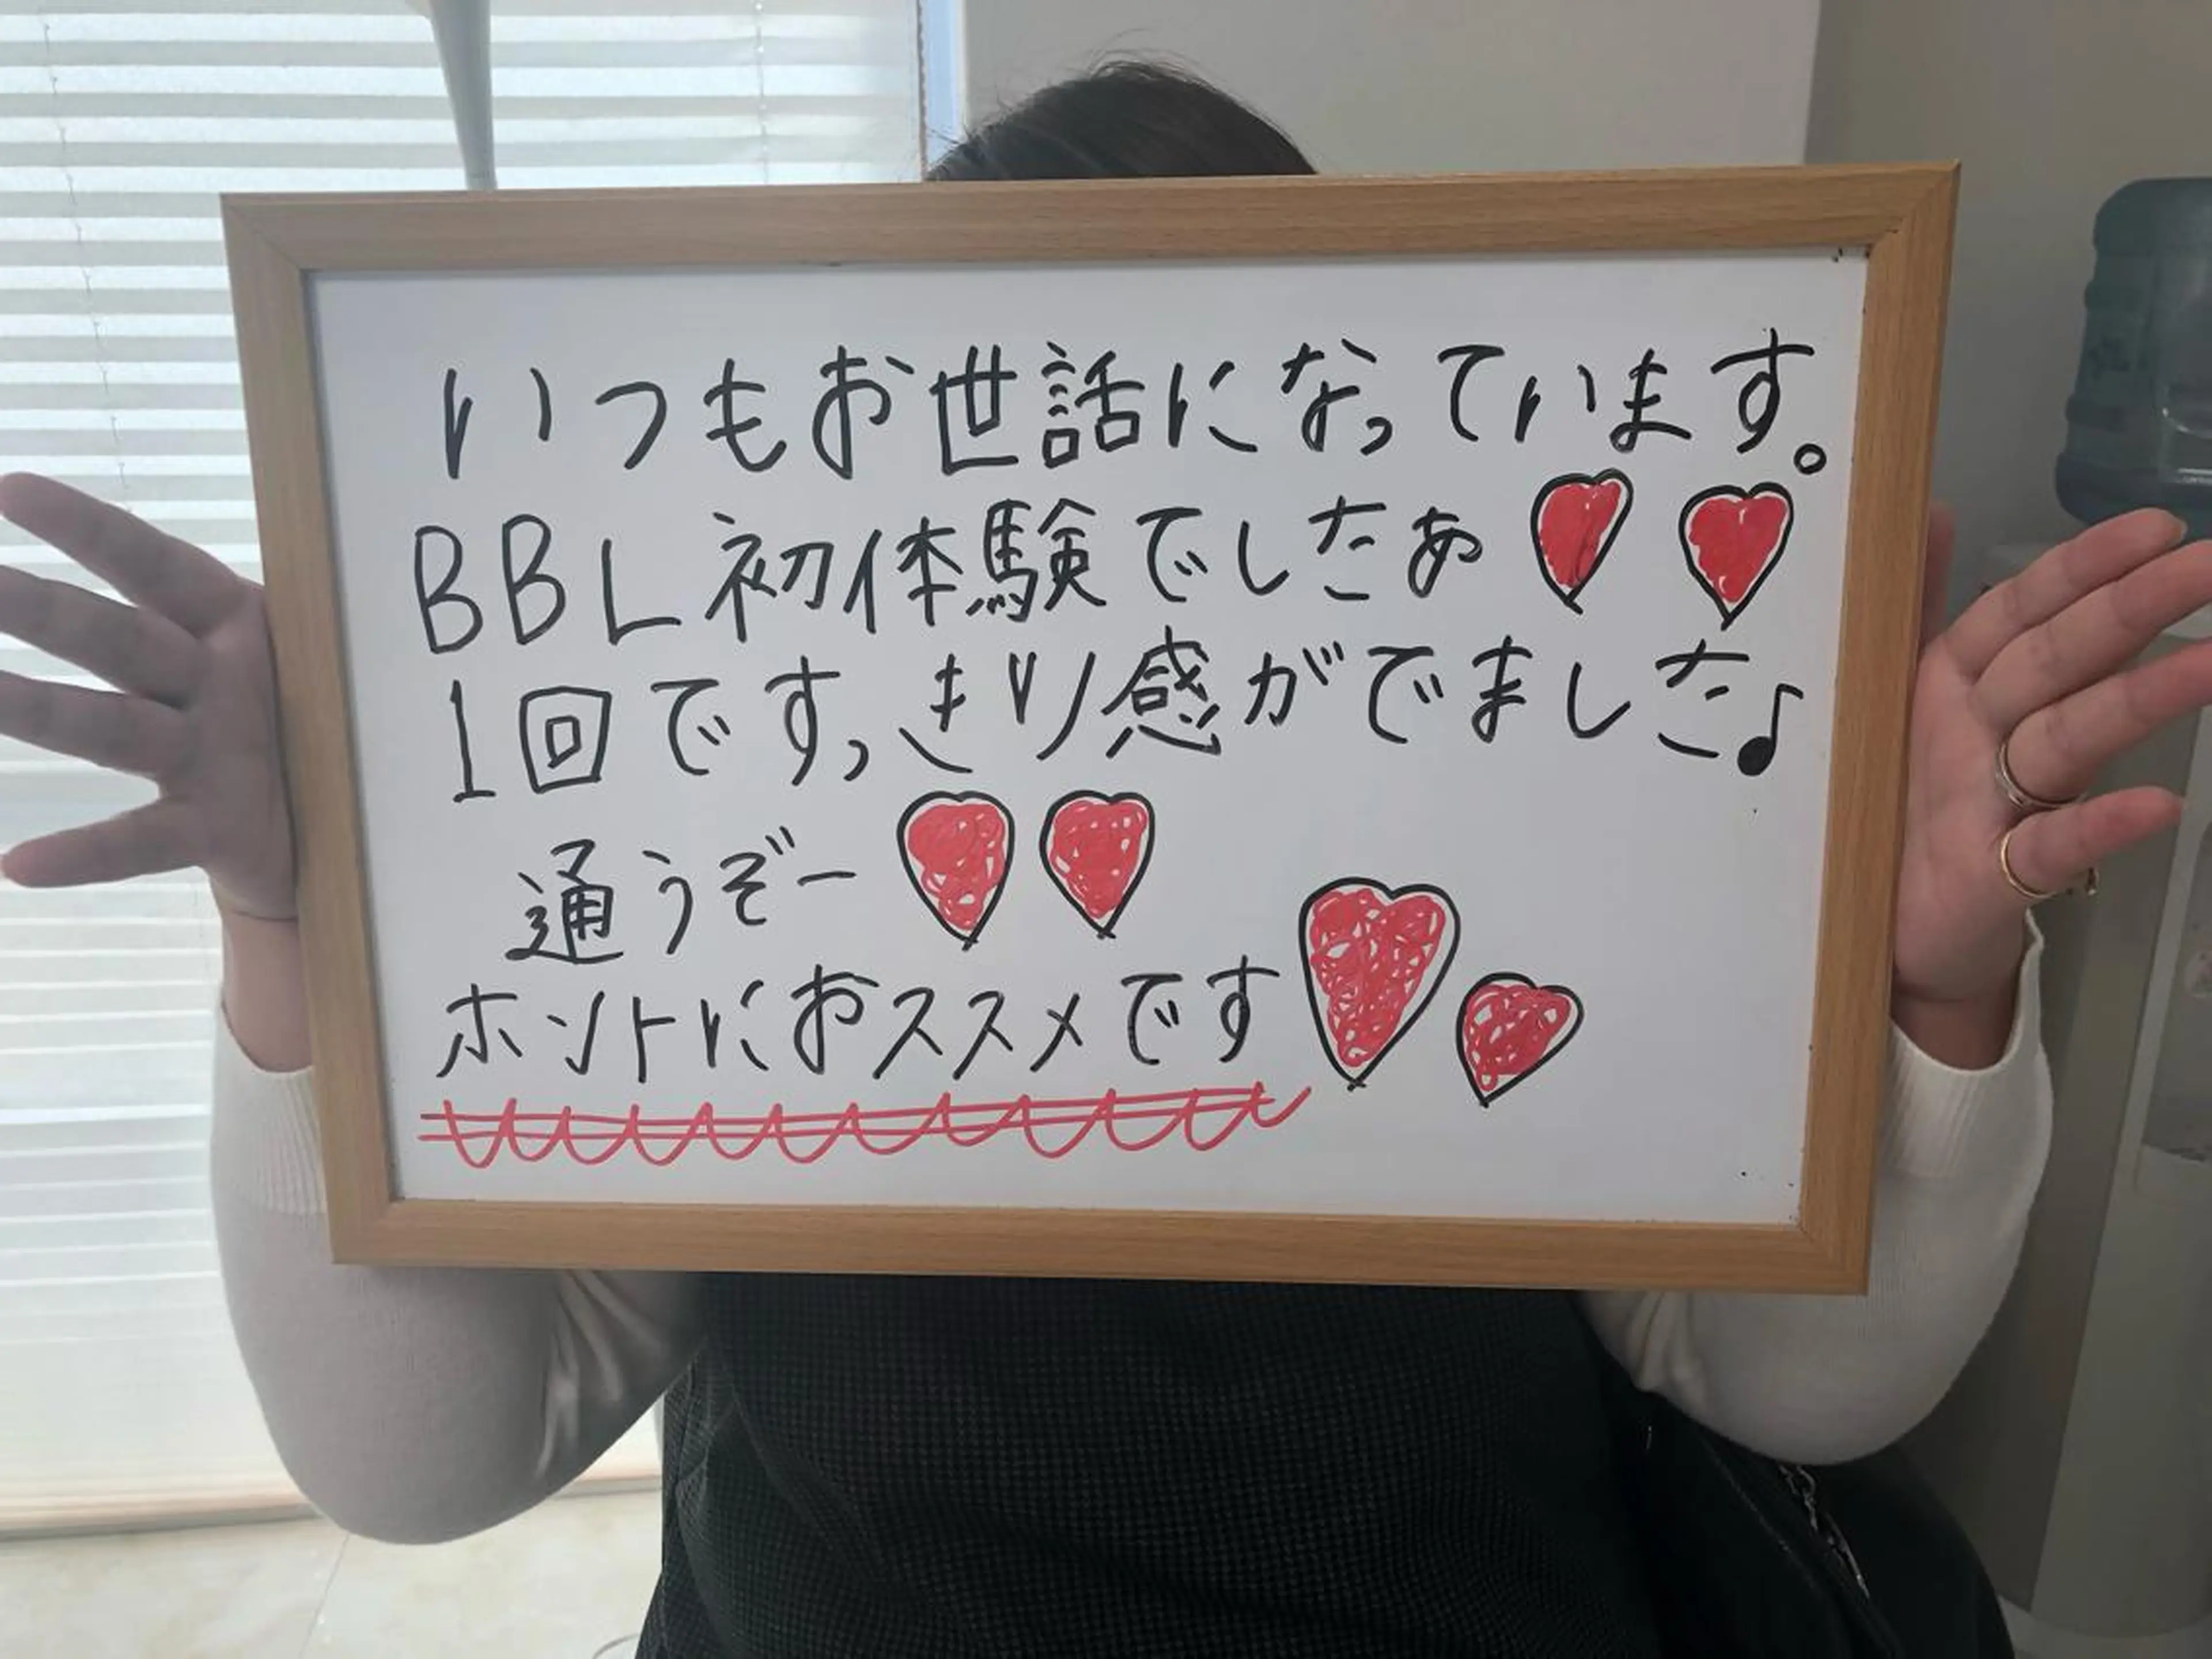 いつもお世話になっています。
BBL初体験でしたぁ
1回ですっきり感がでました♪
通うぞー
ホントにおススメです